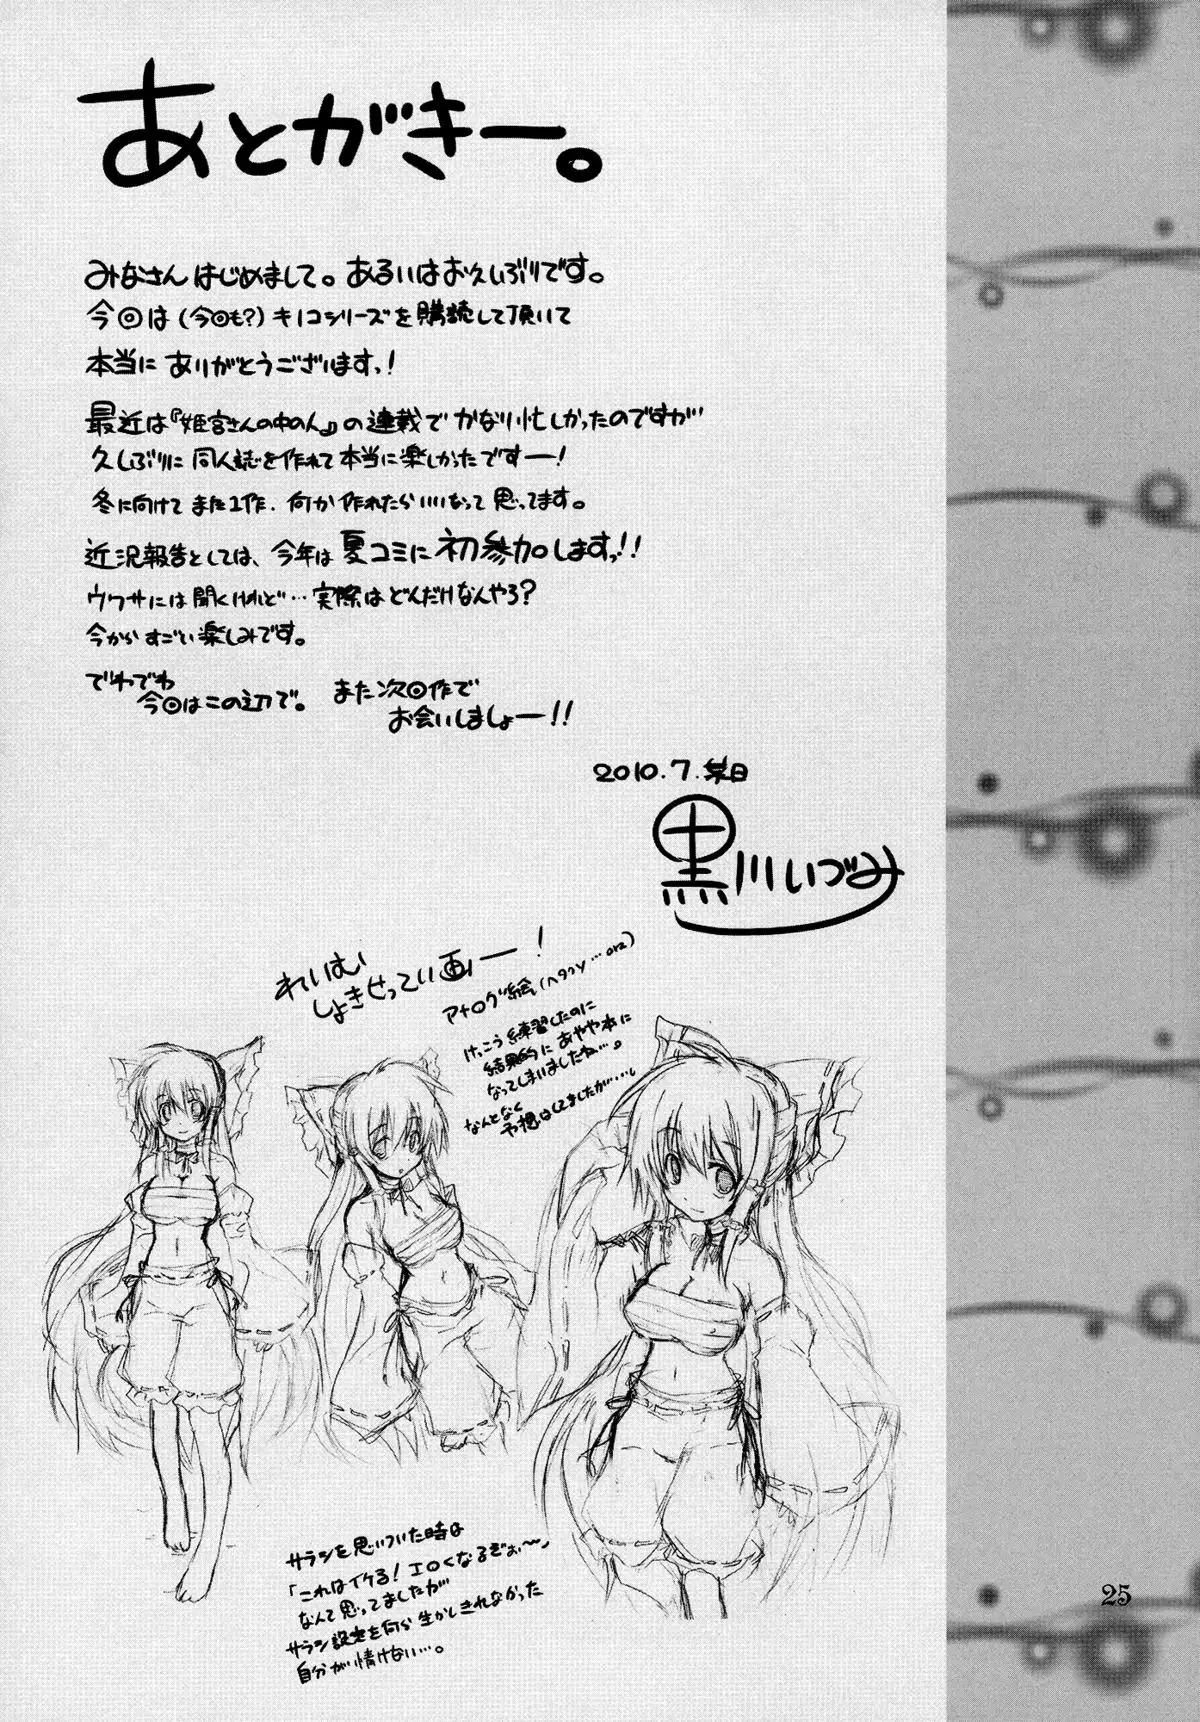 あとがきー。
みなさん はじめまして。あるいはお久しぶりです。
今回は(今回も?)キノコシリーズを購読して頂いて
本当に ありがとうございますっ!
最近は『姫宮さんの中の人』の連載で かなり忙しかったのですが
久しぶりに 同人誌を作れて本当に楽しかったですー!
冬に向けて また1作、何か作れたらいいなって思ってます。
近況報告としては、今年は夏コミに初参加しますっ!!
ウワサには聞くけれど…実際はどんだけなんやろ?
今からすごい楽しみです。
でわでわ
今回はこの辺で。
また次回作で
お会いしましょー!!
2010.7.某日
黒川いづみ
れいむ
しょきせってい画ー!
アナログ絵(ヘタクソ…orz)
けっこう練習したのに
結果的に あやや本に
なってしまいましたね…。
なんとなく
予想はしてましたが…
サラシを思いついた時は
「これはイケる!エロくなるぞぉ〜」
なんて思ってましたが
サラシ設定を何ら生かしきれなかった
自分が情けない…。
25